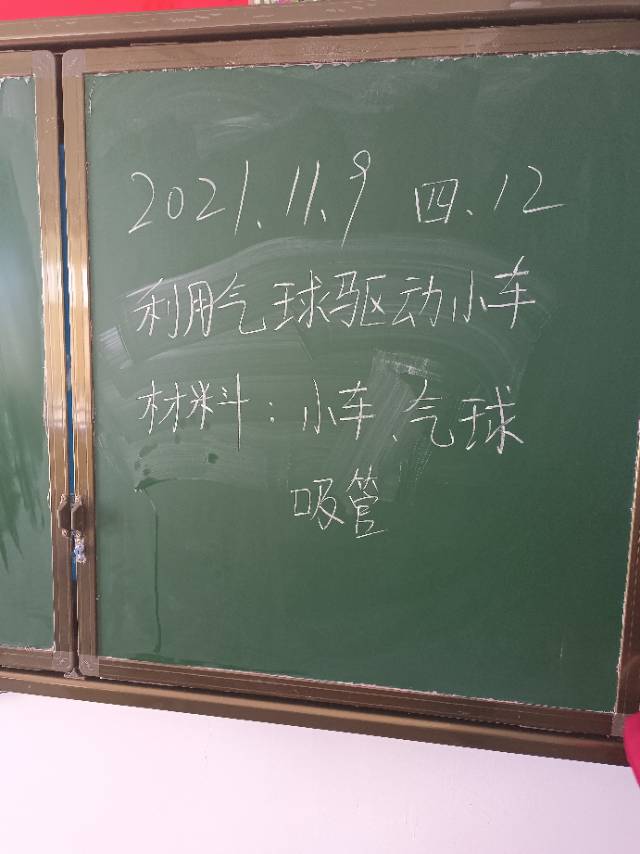 2021.11.9 四、12
利用气球驱动小车
材料：小车、气球
吸管